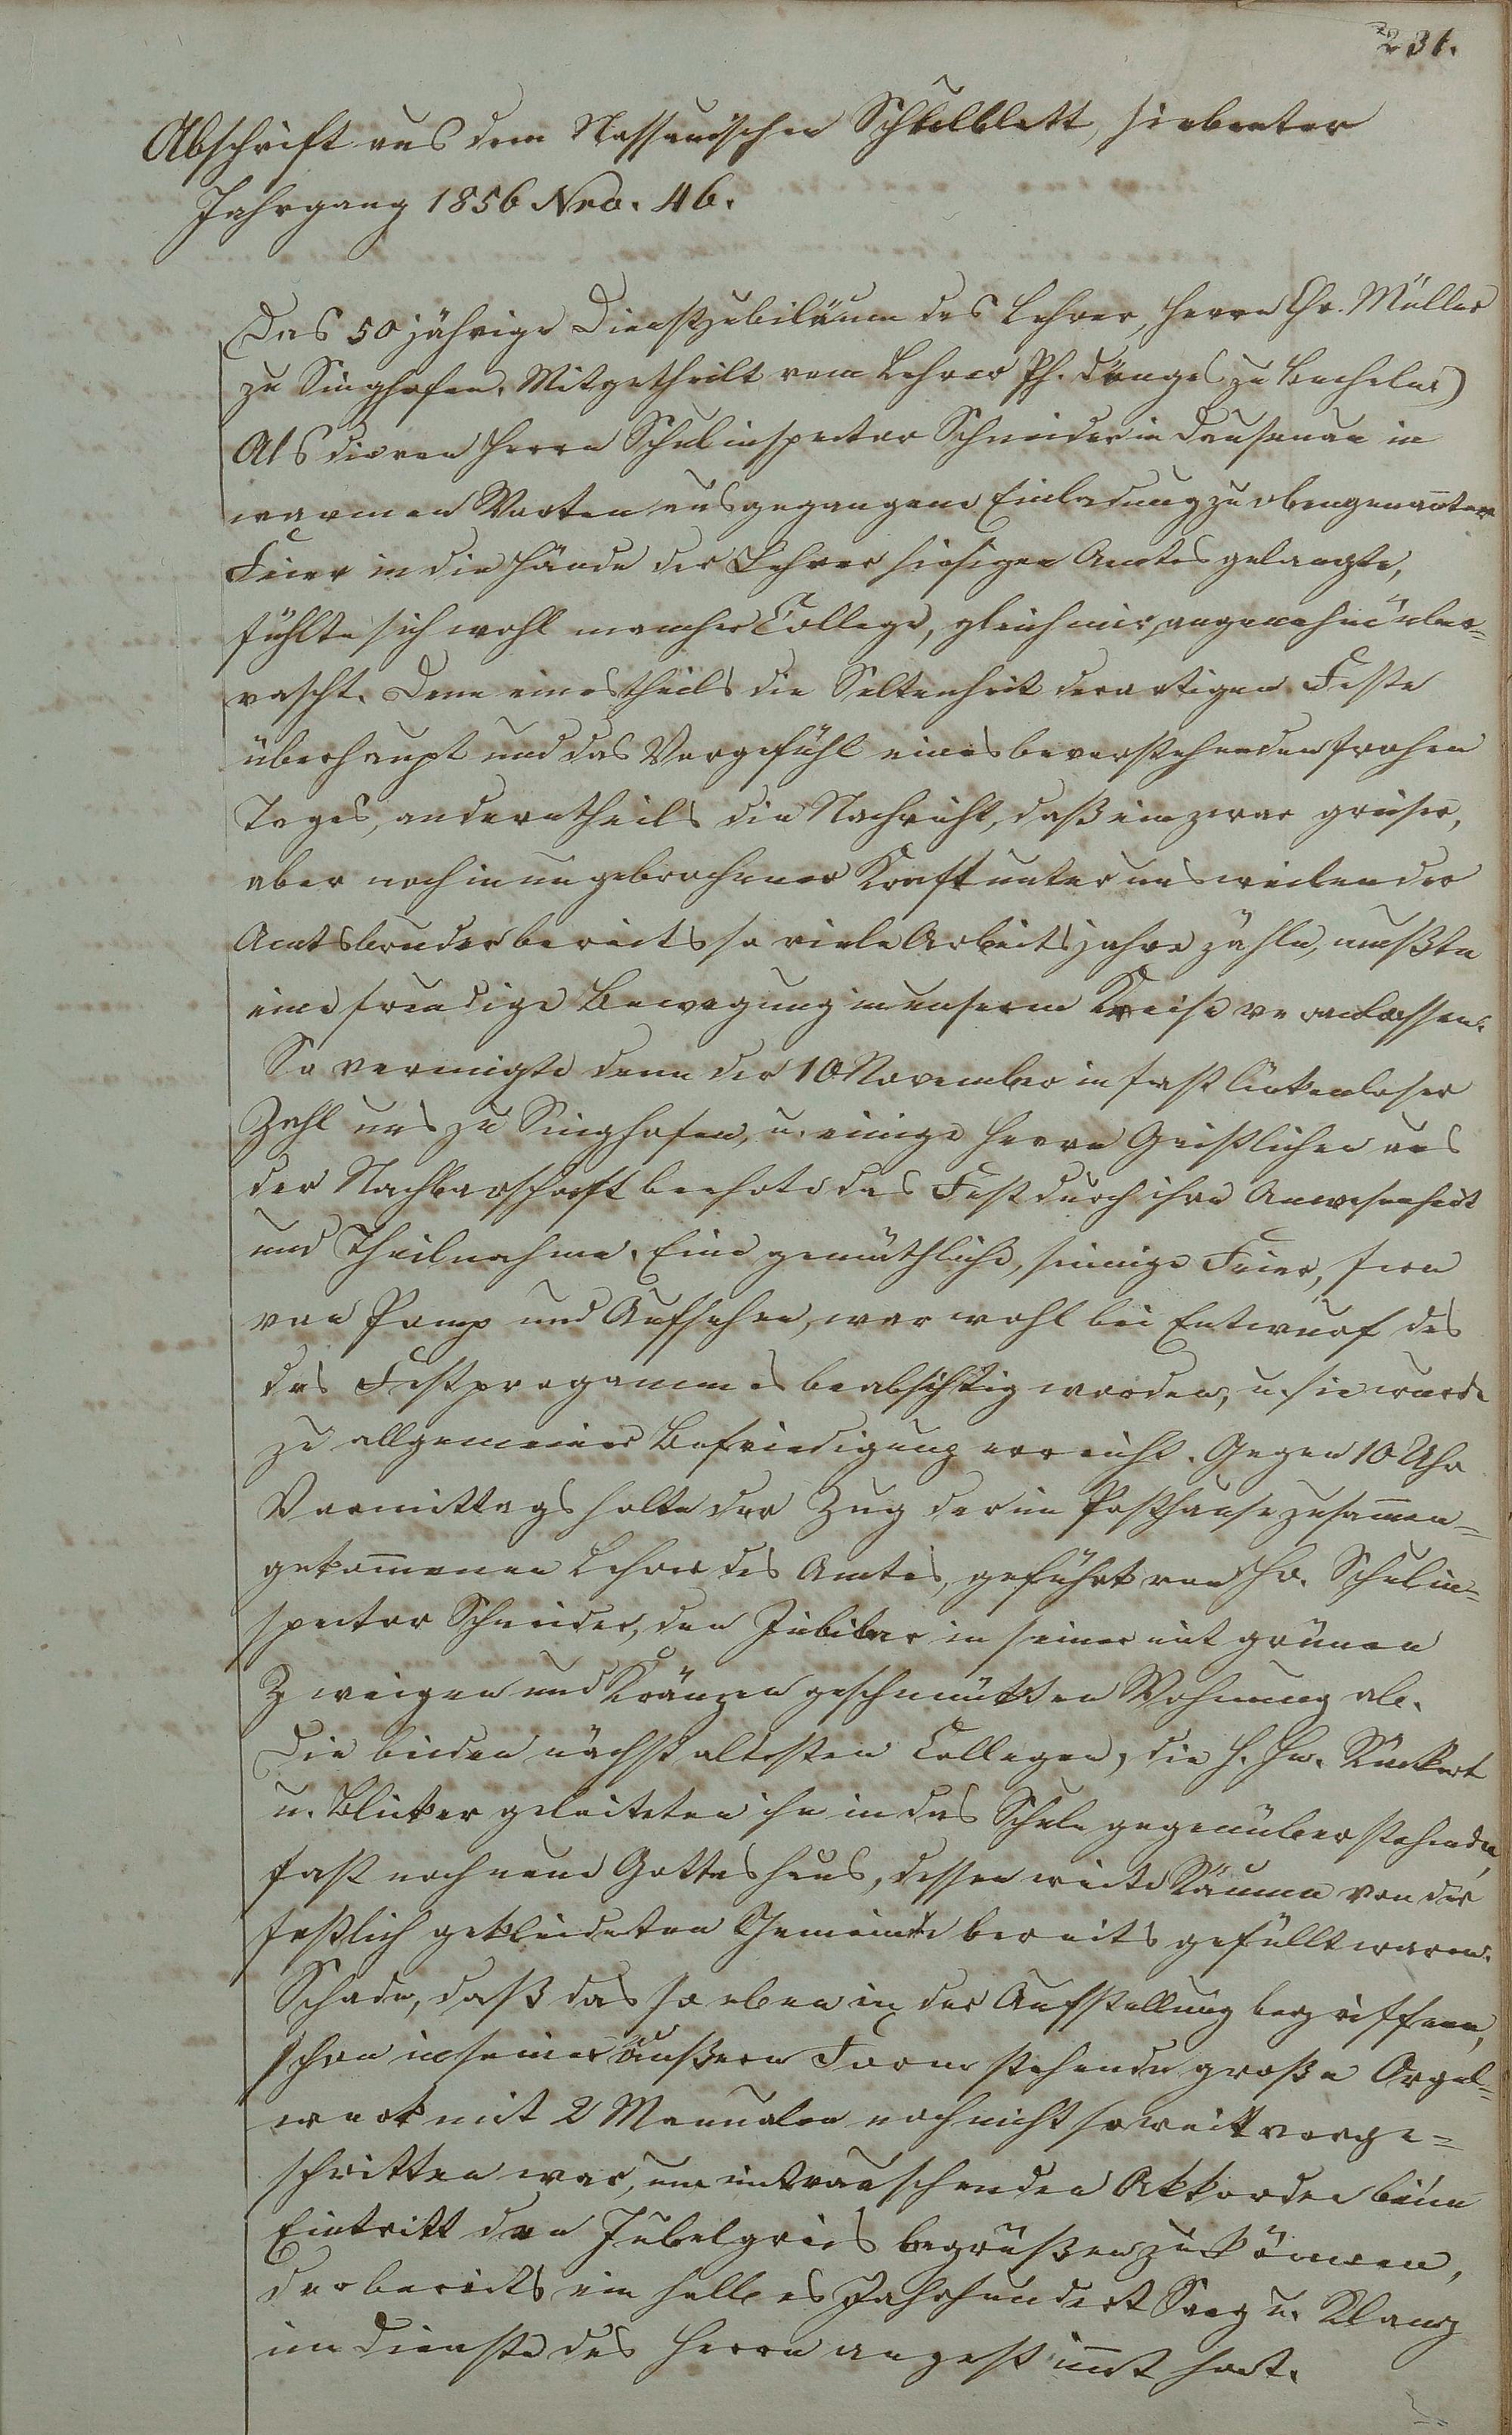 231.
Abschrift aus dem Nassauischen Schulblatt, siebenter
Jahrgang 1856 Nro. 46.
(Das 50 jährige Dienstjubiläum des Lehrer, Herrn Chr. Müller
zu Singhofen. Mitgetheilt vom Lehrer Ph. Dönges zu Becheln)
Als die von Herrn Schulinspector Schneider in Dausenau in
warmen Worten ausgegangene Einladung zu obengenan̄ter
Feier in die Hände der Lehrer hiesigen Amtes gelangte,
fühlte sich wohl mancher College, gleich mir, angenehm über=
rascht. Denn einestheils die Seltenheit derartigen Feste
überhaupt und das Vorgefühl eines bevorstehenden frohen
Tages, anderntheils die Nachricht, daß ein zwar greiser,
aber noch in ungebrochener Kraft unter uns weilender
Amtsbruder bereits so viele Arbeitsjahre zähle, mußte
eine freudige Bewegung in unserm Kreise veranlassen.
So vereinigte denn der 10 November in fast lückenloser
Zahl uns zu Singhofen, u. einige Herrn Geistlichen aus
der Nachbarschaft beehrte das Fest durch ihre Anwesenheit
und Theilnahme. Eine gemüthliche, sinnige Feier, fern
von Pomp und Aufsehen, war wohl bei Entwurf des
des Festprogammes beabsichtig worden, u. sie wurde
zu allgemeiner Befriedigung erreicht. Gegen 10 Uhr
Vormittags holte der Zug der im Posthause zusam̄en=
gekom̄enen Lehrer des Amtes, geführt von Hr. Schulin=
spector Schneider, den Jubilar in seiner mit grünen
Zweigen und Kränzen geschmückten Wohnung ab.
Die beiden nächst altesten Collegen, die H. Hr. Rückert
u. Blicker geleiteten ihn in das Schule gegenüber stehende,
fast noch neue Gotteshaus, dessen weite Räume von der
festlich gekleideten Gemeinde bereits gefüllt waren.
Schade, daß das so eben in der Aufstellung begriffene,
schon in seiner äußern Form stehende große Orgel=
werk mit 2 Manualen noch nicht so weit vorge=
schritten war, um mit rauschenden Akkorden beim
Eintritt den Jubelgreis begrüßen zu können,
der bereits ein halbes Jahrhundert Sang u. Klang
im Dienste des Herrn angestim̄t hat.